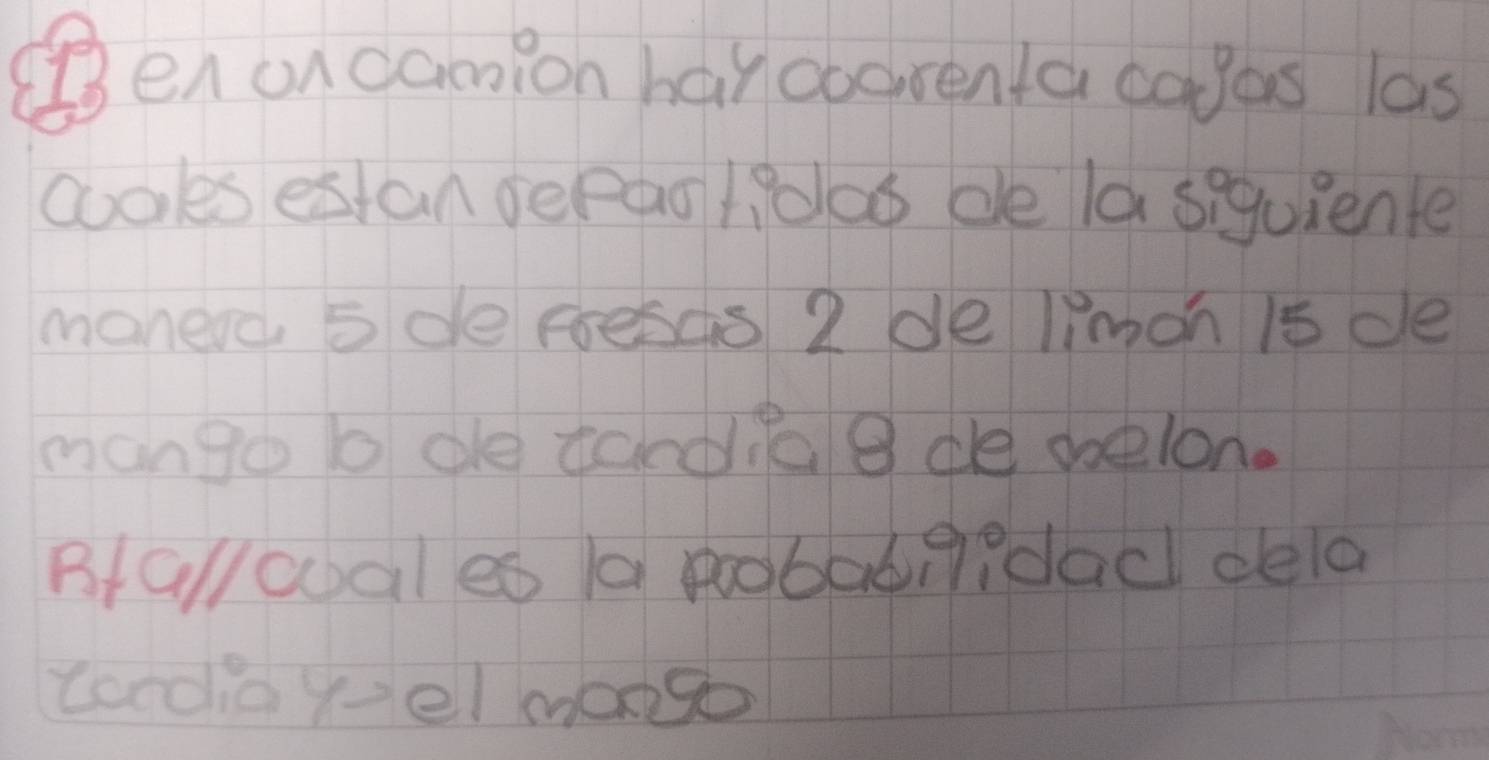 I en un camion hay cuarenta cajas las
cuales estan repartidas de la siguiente
manera 5 de fresas 2 de limón 15 de
mango b de zandia 8 de melon.
R/a// cual es la probabilidad dela
zandia y el mango
Norma